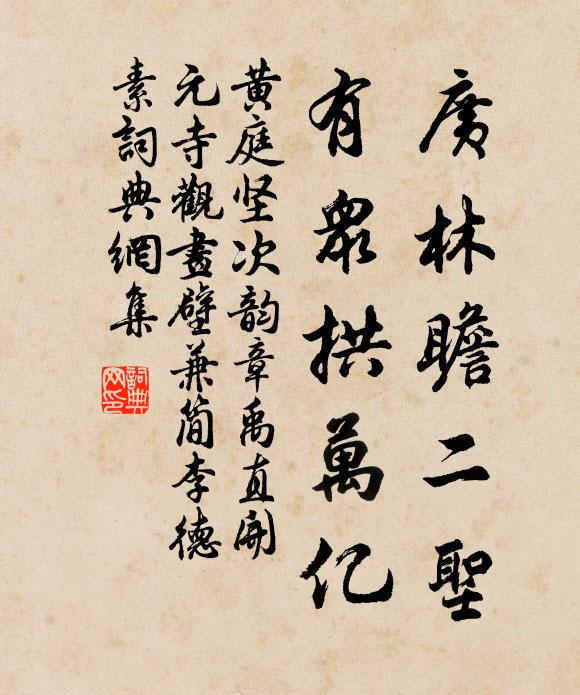 廣林瞻二聖
有眾拱萬亿
黄庭坚次韵章禹直開
元寺觀畫壁兼簡李德
素詞典網集
詞典
网印